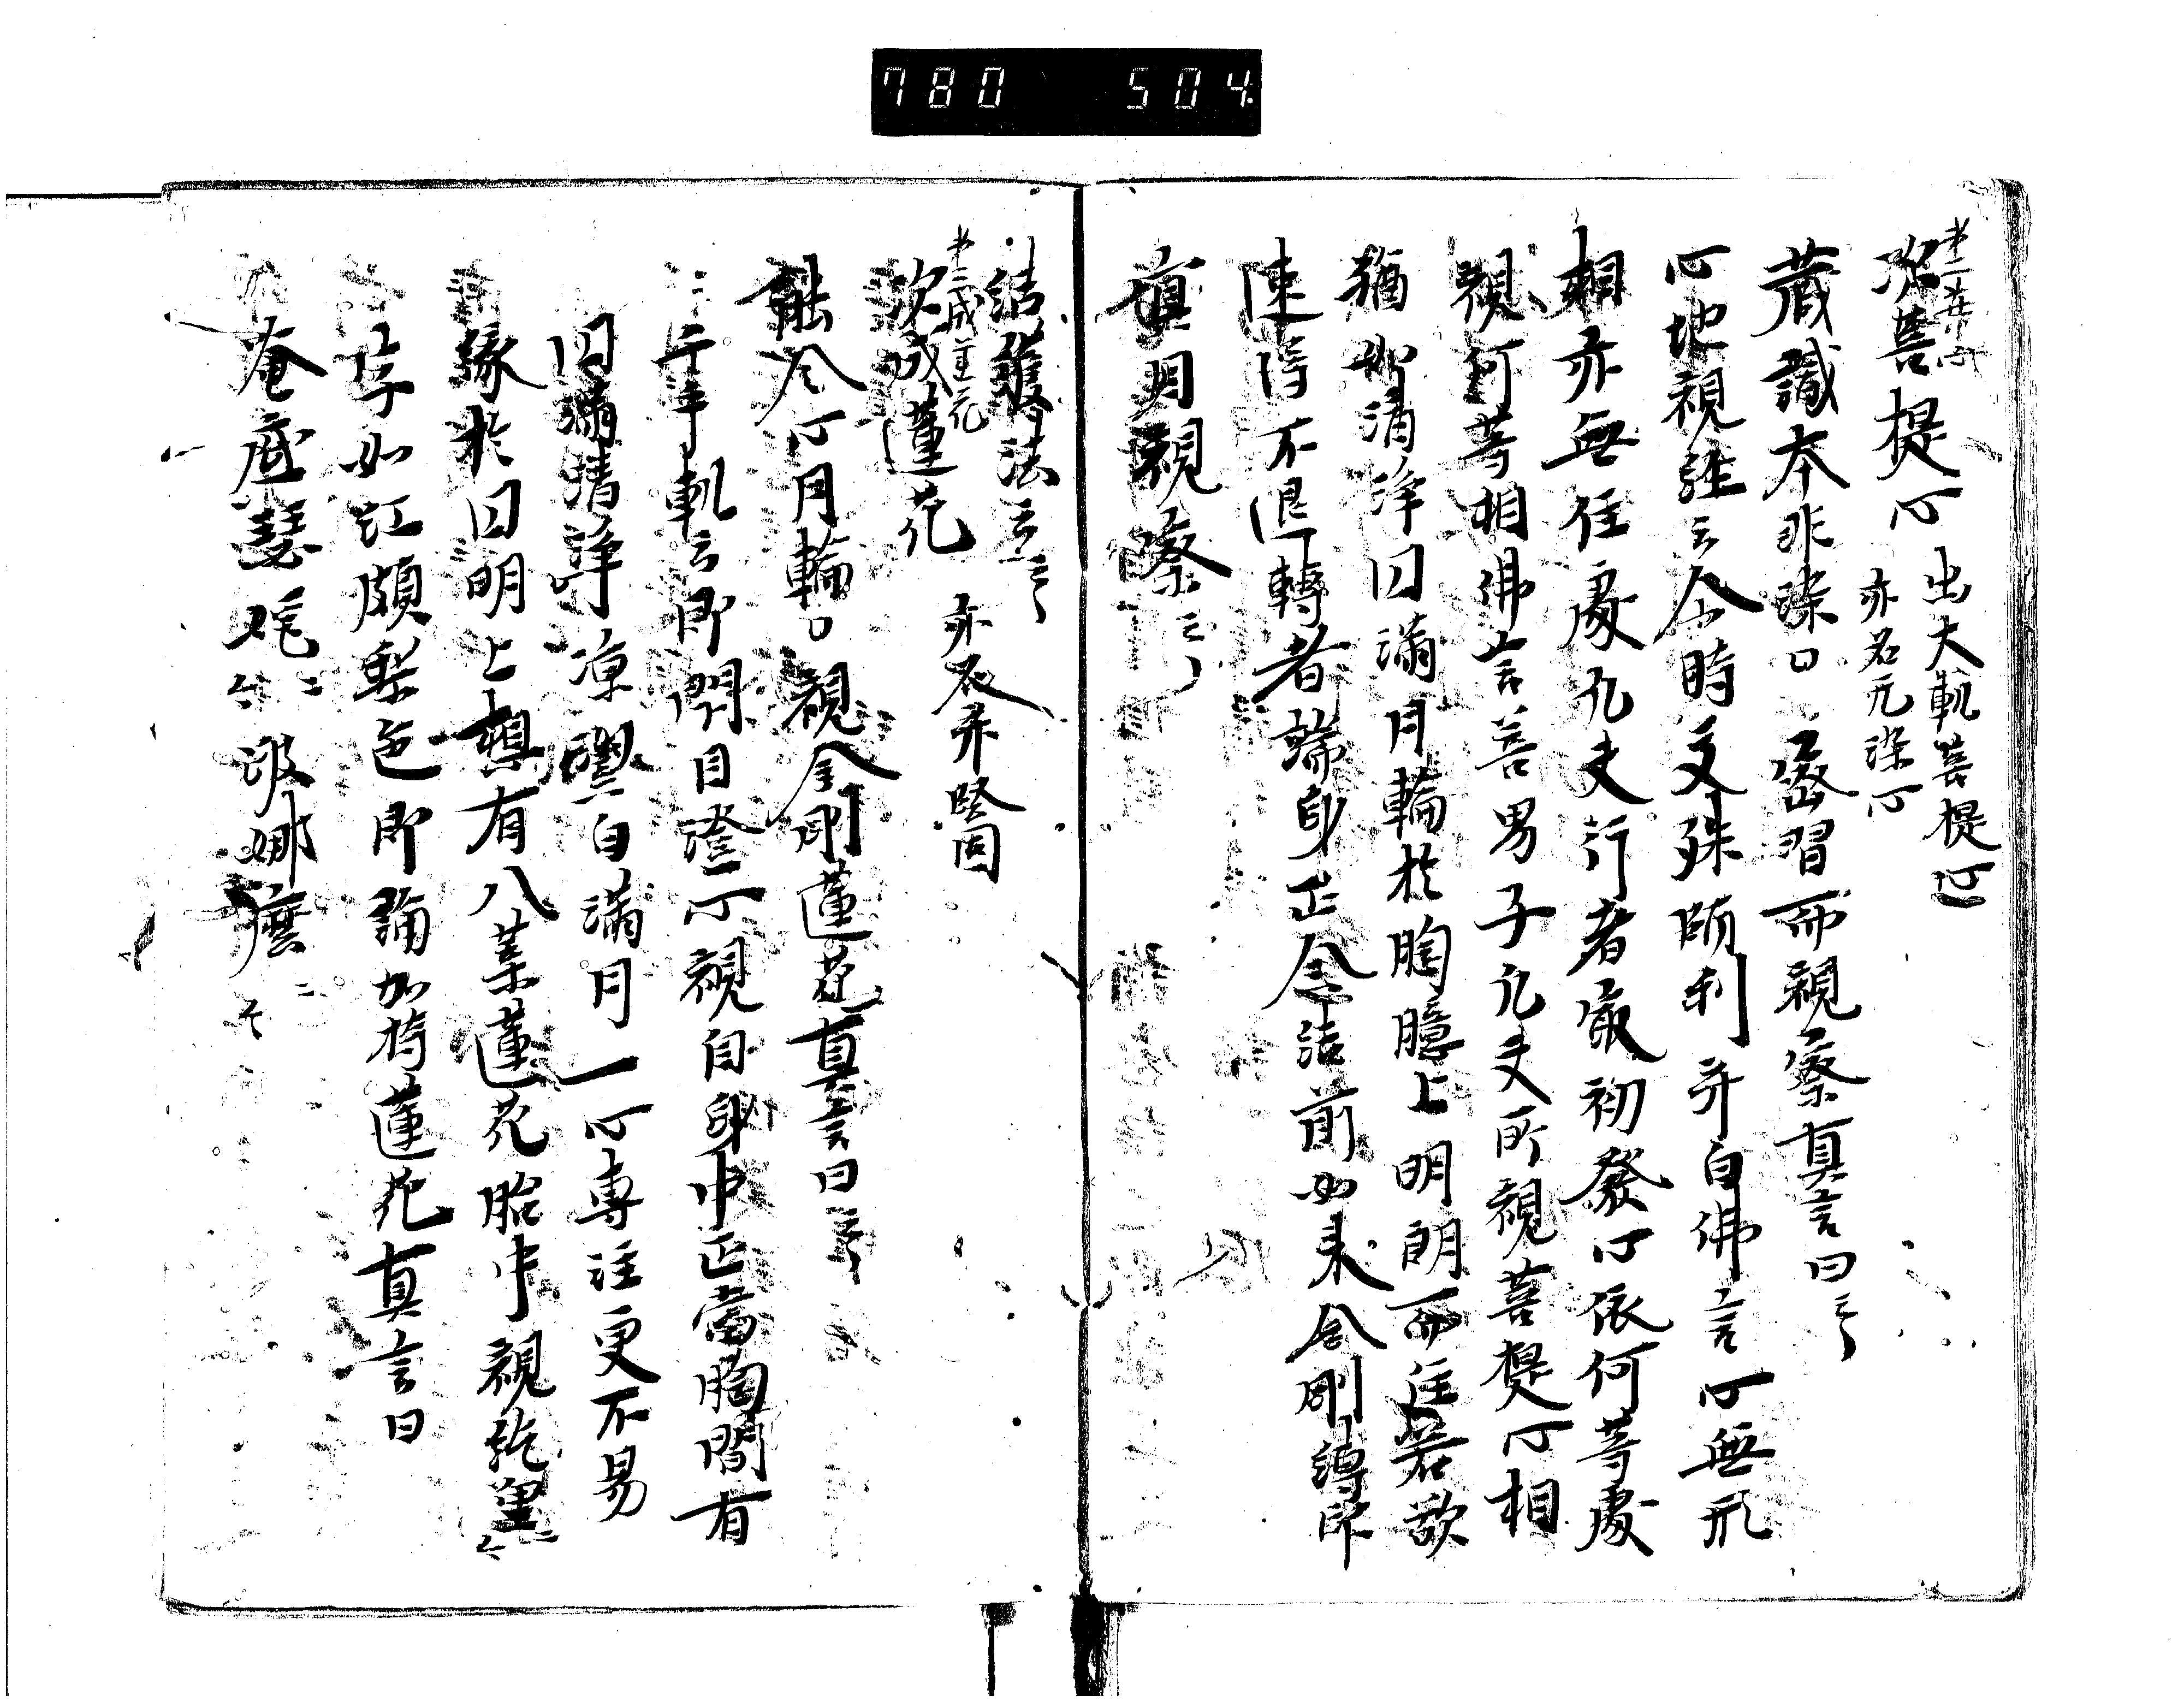 780 504
發菩提心 出大軌菩提心
亦名无染心
藏識本非染 密習而観察真言曰云々
心地観経云 今時文殊師利 白佛言心無形
相亦無住處凡夫行者最初發心依何等處
観何等相佛言善男子凡夫所観菩提心相
猶如清淨円満月輪於胸臆上明朗而住若欲
速得不退轉者 端身正念結前如来金剛縛印
冥目観察云々
結護法云々
第二成蓮花
次成蓮花
能令心月輪 観金剛蓮花真言曰云々
千手軌云即閉目澄心観自身中正當胸間有
円満清淨凉 白満月一心専注更不易
縁於円明上想有八葉蓮花胎中観紇哩
字如紅頗梨色即誦加持蓮花真言曰
唵底瑟姹 跛娜麽